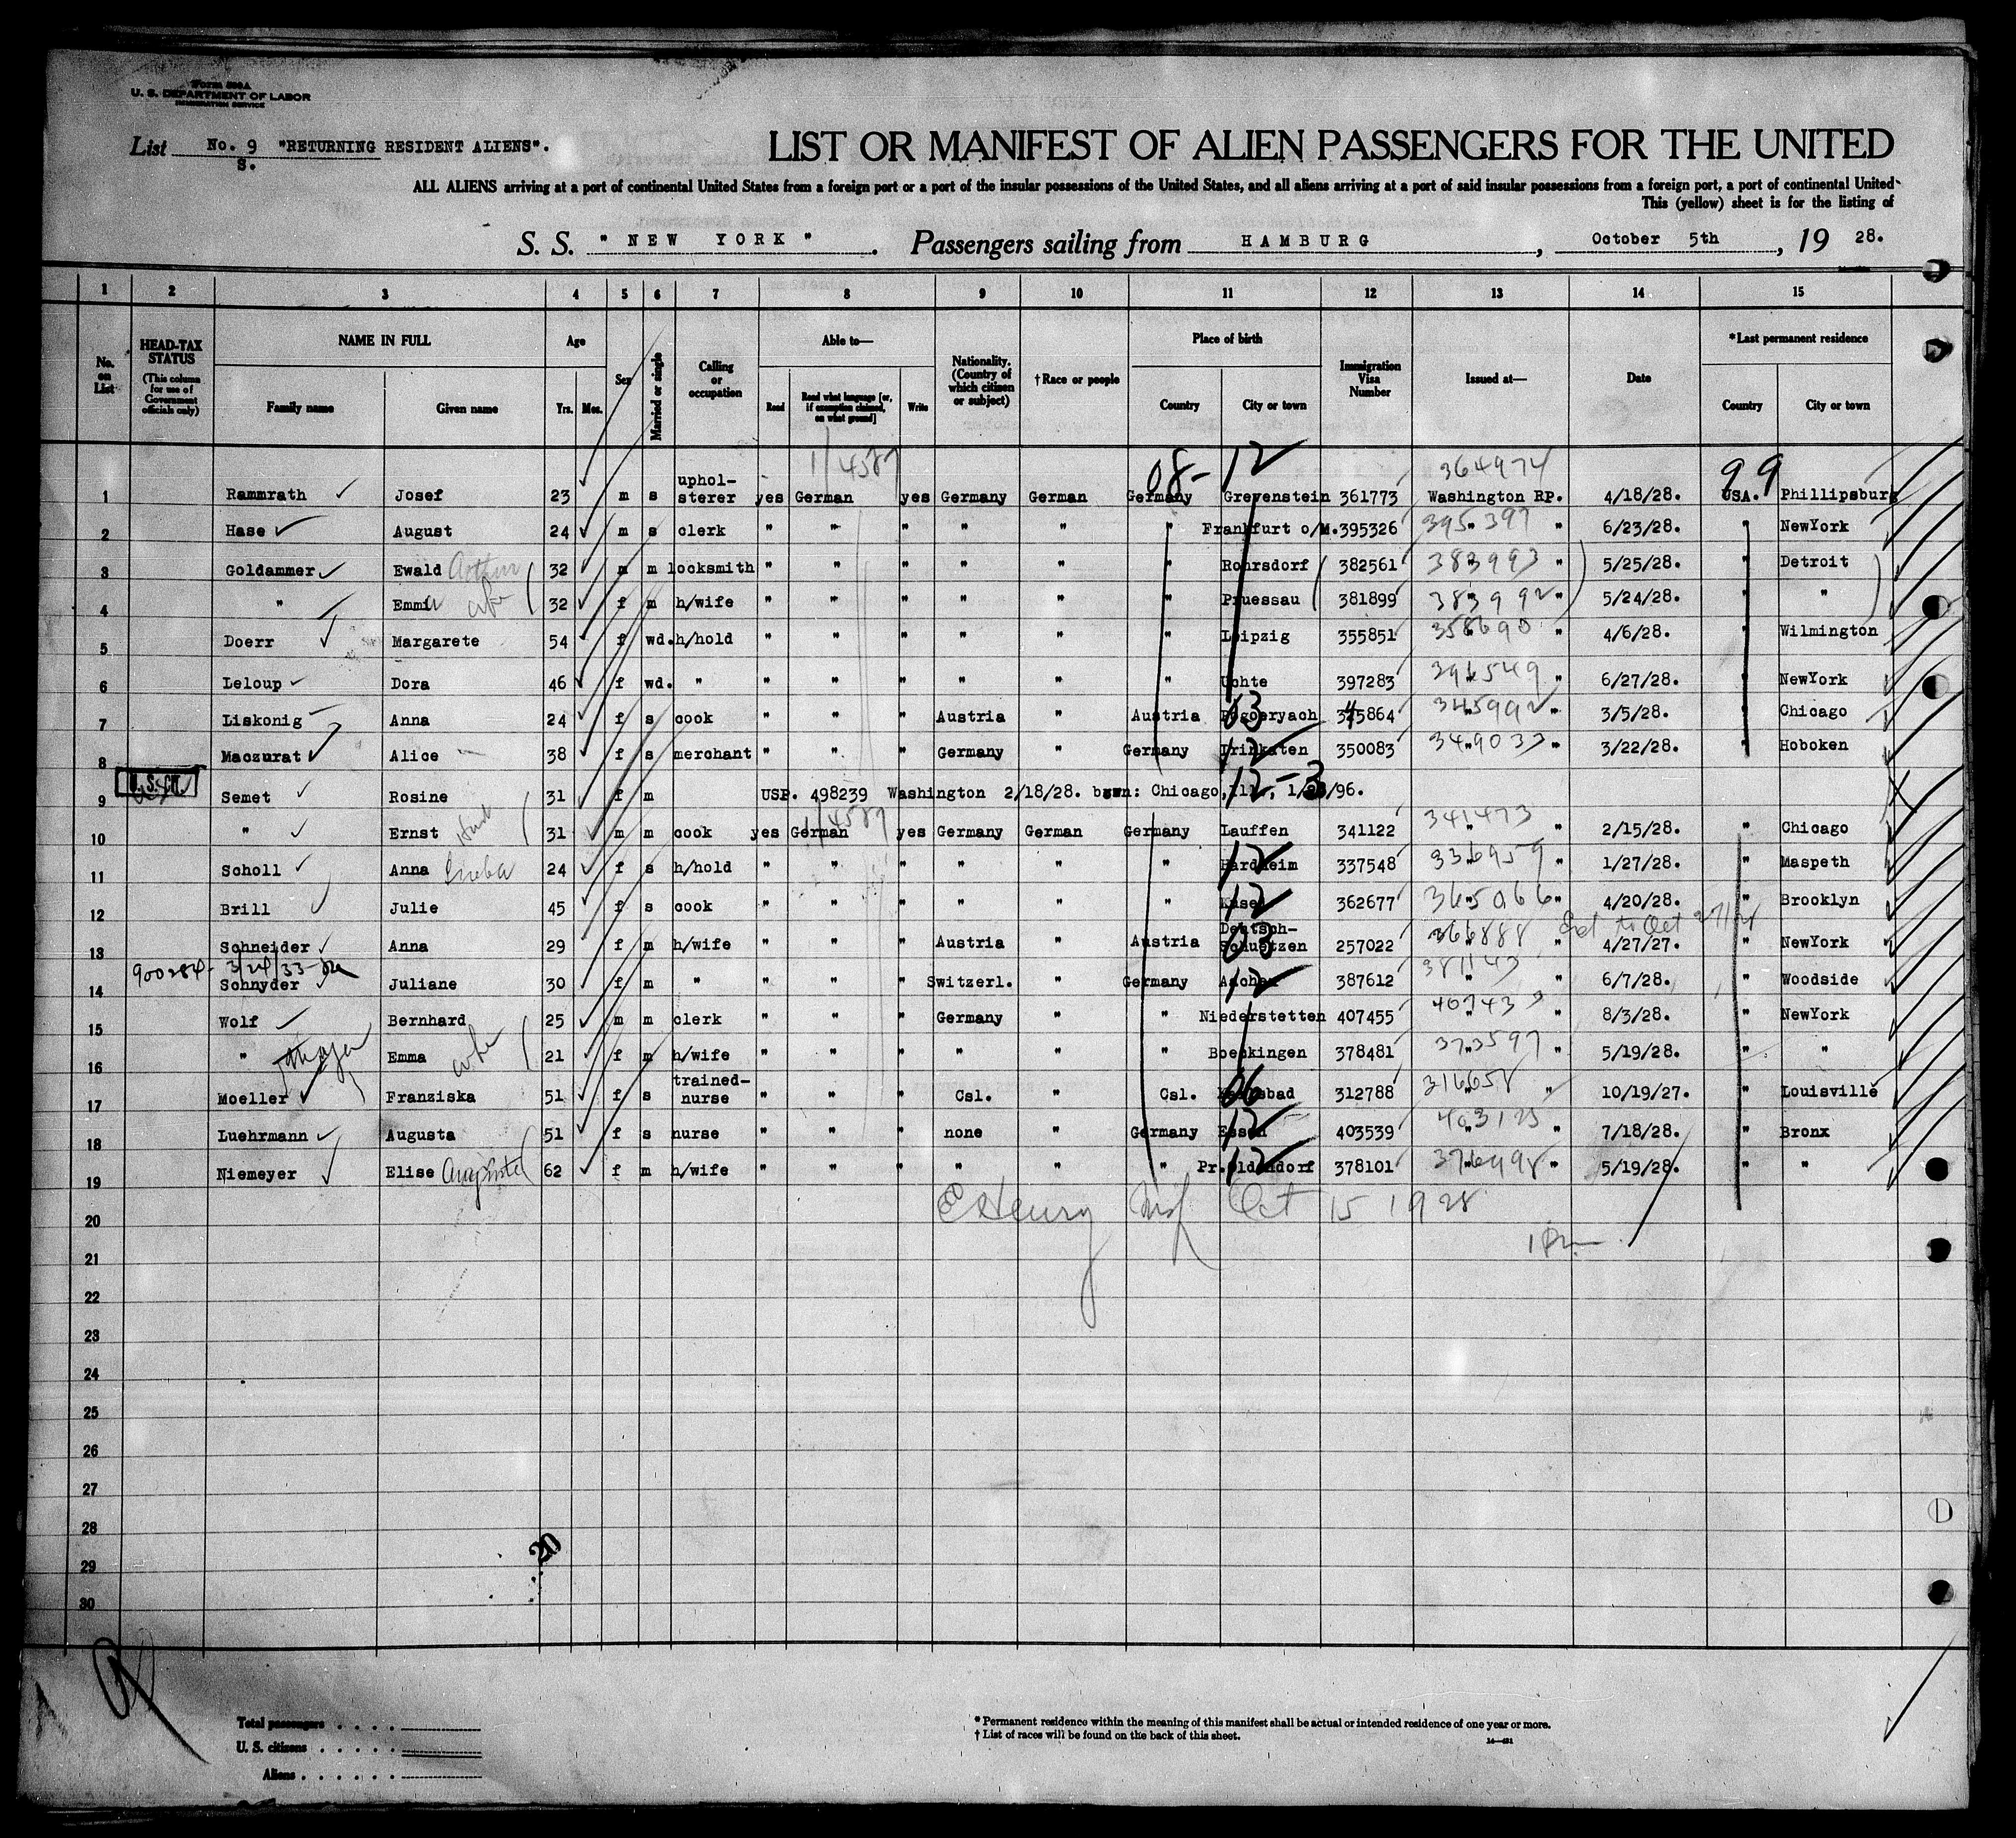 Form 500A
U. S. DEPARTMENT OF LABOR
IMMIGRATION SERVICE
List No. 9 "RETURNING RESIDENT ALIENS".
S.
LIST OR MANIFEST OF ALIEN PASSENGERS FOR THE UNITED
ALL ALIENS arriving at a port of continental United States from a foreign port or a port of the insular possessions of the United States, and all aliens arriving at a port of said insular possessions from a foreign port, a port of continental United
This (yellow) sheet is for the listing of
S. S. "NEW YORK". Passengers sailing from HAMBURG, October 5th, 19 28.
1 2 3 4 5 6 7 8 9 10 11 12 13 14 15
No. on List
HEAD-TAX STATUS (This column for use of Government officials only)
NAME IN FULL Family name Given name
Age Yrs. Mos.
Sex
Married or single
Calling or occupation
Able to— Read Read what language [or, if exemption claimed, on what ground] Write
Nationality. (Country of which citizen or subject)
† Race or people
Place of birth Country City or town
Immigration Visa Number
Issued at—
Date
*Last permanent residence Country City or town
1/4587 08-12 364974 99
1 Rammrath Josef 23 m s uphol-sterer yes German yes Germany German Germany Grevenstein 361773 Washington RP. 4/18/28. USA. Phillipsburg
2 Hase August 24 m s clerk " " " " " " Frankfurt o/M. 395326 395397 " 6/23/28. " NewYork
3 Goldammer Ewald Arthur 32 m m locksmith " " " " " " Rohrsdorf 382561 383993 " 5/25/28. " Detroit
4 " Emma wife 32 f m h/wife " " " " " " Pruessau 381899 383992 " 5/24/28. " "
5 Doerr Margarete 54 f wd. h/hold " " " " " " Leipzig 355851 358690 " 4/6/28. " Wilmington
6 Leloup Dora 46 f wd. " " " " " " " Uchte 397283 396549 " 6/27/28. " NewYork
7 Liskonig Anna 24 f s cook " " " Austria " Austria 03 345864 345992 " 3/5/28. " Chicago
8 Maczurat Alice 38 f s merchant " " " Germany " Germany 12 350083 349033 " 3/22/28. " Hoboken
U. S. CIT. 12-3
9 Semet Rosine 31 f m USP. 498239 Washington 2/18/28. born: Chicago, Ill., 1/ /96.
1/4587
10 " Ernst Husb 31 m m cook yes German yes Germany German Germany Lauffen 341122 341473 " 2/15/28. " Chicago
11 Scholl Anna 24 f s h/hold " " " " " " Hardheim 12 337548 336959 " 1/27/28. " Maspeth
12 Brill Julie 45 f s cook " " " " " " Kasel 12 362677 365066 " 4/20/28. " Brooklyn
Ext to Oct 27/28
13 Schneider Anna 29 f m h/wife " " " Austria " Austria Deutsch-Schuetzen 03 257022 366888 " 4/27/27. " NewYork
900284- 3/24/33
14 Schnyder Juliane 30 f m " " " " Switzerl. " Germany Aachen 12 387612 381143 " 6/7/28. " Woodside
15 Wolf Bernhard 25 m m clerk " " " Germany " " Niederstetten 407455 407433 " 8/3/28. " NewYork
16 " Emma wife 21 f m h/wife " " " " " " Boeckingen 378481 373597 " 5/19/28. " "
17 Moeller Franziska 51 f s trained-nurse " " " Csl. " Csl. 06 312788 316658 " 10/19/27. " Louisville
18 Luehrmann Augusta 51 f s nurse " " " none " Germany Essen 12 403539 403125 " 7/18/28. " Bronx
19 Niemeyer Elise Auguste 62 f m h/wife " " " " " " Pr.Oldendorf 12 378101 376498 " 5/19/28. " "
20 E Henry Oct 15 1928
21
22
23
24
25
26
27
28
29
30
20
Total passengers
U. S. citizens
Aliens
* Permanent residence within the meaning of this manifest shall be actual or intended residence of one year or more.
† List of races will be found on the back of this sheet.